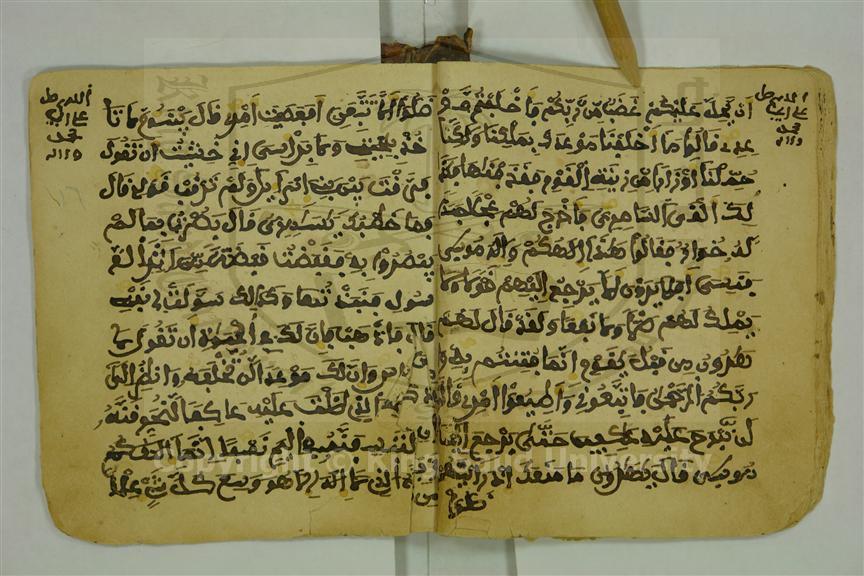 ان يحل عليكم غضب من ربكم فاخلفتم مو
عدى قالوا ما اخلفنا موعدك بملكنا ولكنا
حملنا اوزارا من زينة القوم فقذفناها فكذ
لك القى السامرى فاخرج لهم عجلا جسدا
له خوار فقالوا هذا الهكم واله موسى
فنسى افلا يرون الا يرجع اليهم قولا ولا
يملك لهم ضرا ولا نفعا ولقد قال لهم
هرون من قبل يقوم انما فتنتم به وان
ربكم الرحمن فاتبعونى واطيعوا امرى قالوا
لن نبرح عليه عكفين حتى يرجع الينا
موسى قال يهرون ما منعك اذ رايتهم
ضلوا الا تتبعن افعصيت امرى قال يبنؤم لا تا
خذ بلحيتى ولا براسى انى خشيت ان تقول
فرقت بين بنى اسراءيل ولم ترقب قولى قال
فما خطبك يسمرى قال بصرت بما لم
يبصروا به فقبضت قبضة من اثر الر
سول فنبذتها وكذلك سولت لى نفسى
قال فاذهب فان لك فى الحيوة ان تقول لا
مساس وان لك موعدا لن تخلفه وانظر الى
الهك الذى ظلت عليه عاكفا لنحرقنه
ثم لننسفنه فى اليم نسفا انما الهكم
الله الذى لا اله الا هو وسع كل شىء علما
Copyright © King Saud University